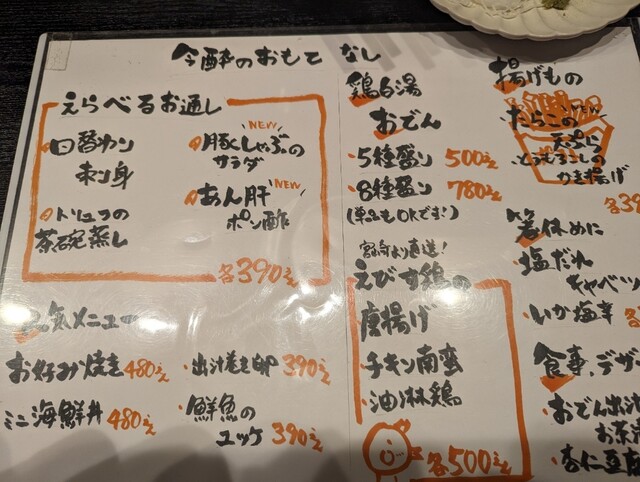 今酔のおもてなし
えらべるお通し
日替わり
刺し身
トリュフの
茶碗蒸し
NEW
豚しゃぶの
サラダ
NEW
あん肝
ポン酢
各390えん
人気メニュー
お好み焼き480えん
・出汁巻き卵 390えん
ミニ海鮮丼 480えん
・鮮魚の
ユッケ 390えん
鶏白湯
おでん
・5種盛り 500えん
・8種盛り 780えん
(単品もOKです!)
宮崎より直送!
えびす鶏の
・唐揚げ
・チキン南蛮
・油淋鶏
各500えん
揚げもの
NEW
・たらこの
天ぷら
・とうもろこしの
かき揚げ
各39
箸休めに
・塩だれ
キャベツ
・いか塩辛
食事、デザ
・おでん出汁
お茶漬
・杏仁豆腐